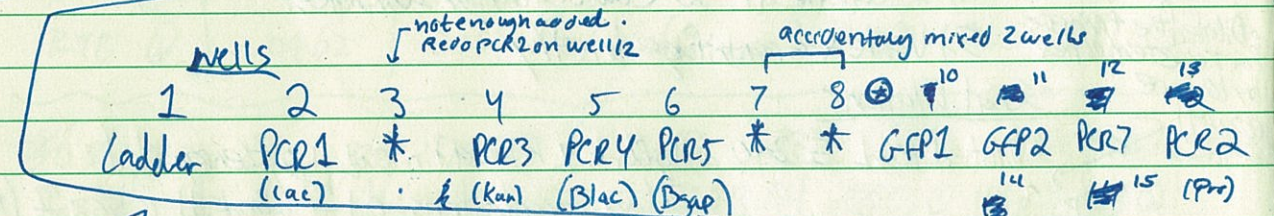 not enough added.
Redo PCR2 on well 12
accidentaly mixed 2 wells
wells
1 2 3 4 5 6 7 8 10 11 12 13
Ladder PCR1 * PCR3 PCR4 PCR5 * * GFP1 GFP2 PCR7 PCR2
(lac) (Kan) (Blac) 14 15 (Pro)